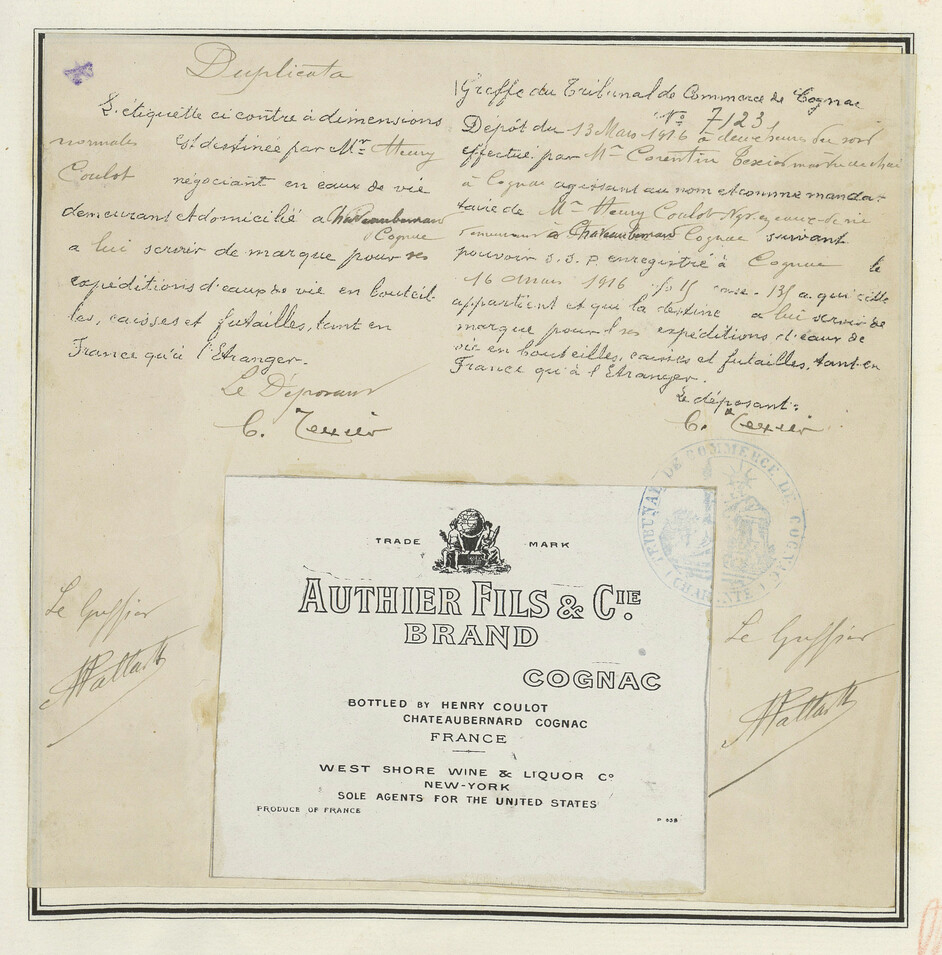 Duplicata
L'étiquette ci contre à dimensions
normales est destinée par Mr. Henry
Coulot négociant en eaux de vie
demeurant et domicilié à Chateaubernard
Cognac
à lui servir de marque pour ses
expéditions d'eaux de vie en bouteil-
les, caisses et futailles, tant en
France qu'à l'Etranger.
Le Déposant
C. Texier
Greffe du Tribunal de Commerce de Cognac
No 7123
Dépôt du 13 Mars 1916 à deux heures du soir
effectué par Mr Corentin Texier maitre de chai
à Cognac agissant au nom et comme manda-
taire de Mr Henry Coulot Ngt en eaux-de-vie
demeurant à Chateaubernard Cognac suivant
pouvoir s. s. p. enregistré à Cognac le
16 Mars 1916 fo 15 case 135 a. qui cette
appartient et que la destine à lui servir de
marque pour ses expéditions d'eaux de
vie en bouteilles, caisses et futailles, tant en
France qu'à l'Etranger.
Le déposant:
C. Texier
TRIBUNAL DE COMMERCE DE COGNAC
(CHARENTE)
TRADE MARK
AUTHIER FILS & CIE.
BRAND
COGNAC
BOTTLED BY HENRY COULOT
CHATEAUBERNARD COGNAC
FRANCE
WEST SHORE WINE & LIQUOR Co
NEW-YORK
SOLE AGENTS FOR THE UNITED STATES
PRODUCE OF FRANCE
Le Greffier
Le Greffier